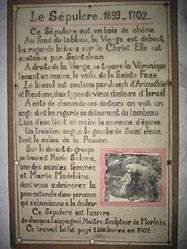 Le Sépulcre _ 1699 _ 1702 _
Ce Sépulcre est en bois de chêne
Au fond du tableau, la Vierge est debout,
les regards baissés sur le Christ. Elle est
soutenue par Saint Jean.
A droite de la Vierge, se trouve la Véronique
tenant en mains, le voile de la Sainte Face.
Le linceul est soutenu par Joseph d'Arimathie
et Nicodème, tous les deux docteurs d'Israël
A côté de chacun de ces docteurs on voit un
ange dont les regards se détournent du tombeau
L'un des deux tient en mains la couronne d'épines
Un troisième ange, à la gauche de Saint Jean
tient le calice de la Passion.
Sur le devant du groupe
se trouvent Marie Salomé,
une des saintes femmes
et Marie Madeleine,
dont vous admirerez la
pose naturelle dans l'expression
de la douleur
Ce Sépulcre est l'œuvre
de Jacques Lespaignol, Maître, Sculpteur de Morlaix
Ce travail fut payé 1.300 livres en 1702